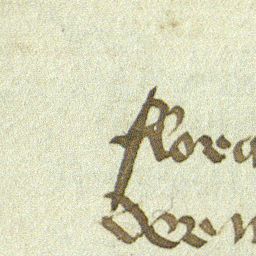 flora
der